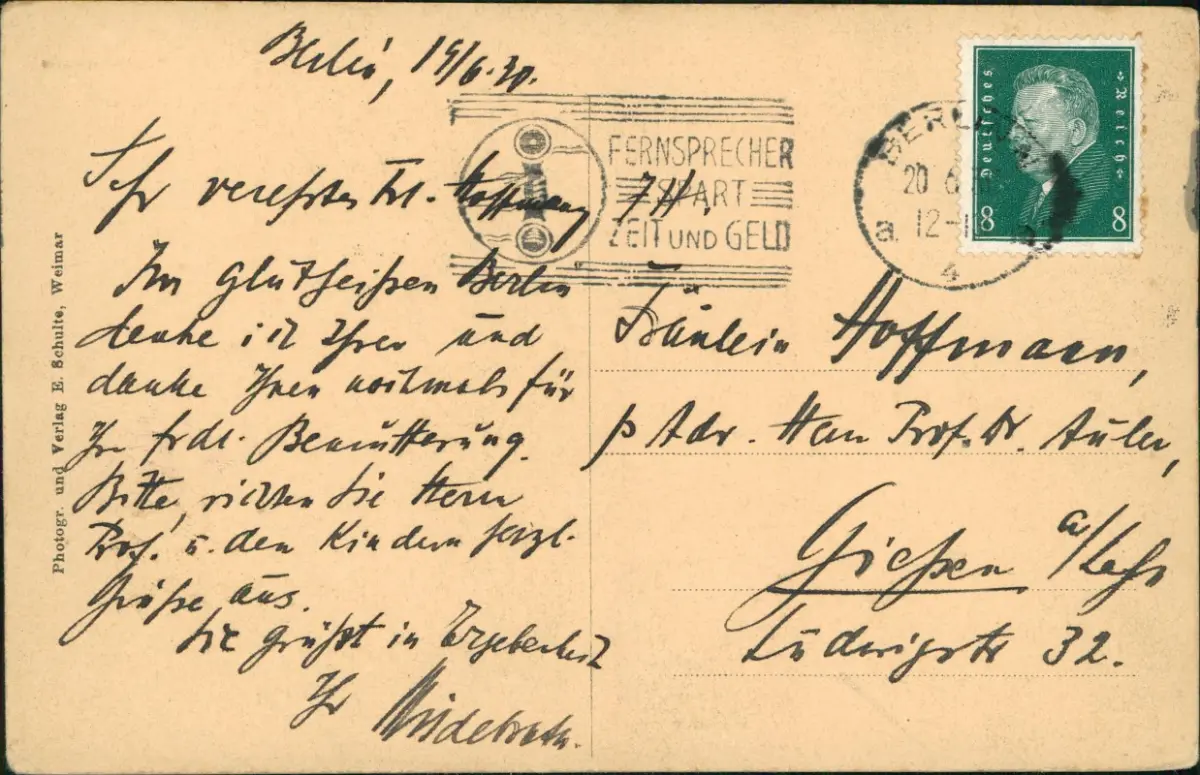 Berlin, 19/6.30.
Sehr verehrtes Frl. Hoffmann
Im glutheißen Berlin
denke ich Ihrer und
danke Ihnen nochmals für
Ihre frdl. Bemutterung.
Bitte, richten Sie Herrn
Prof. u. den Kindern herzl.
Grüße aus.
Sie grüßt in Ergebenheit
Ihr
Photogr. und Verlag E. Schulte, Weimar
FERNSPRECHER
SPART
ZEIT UND GELD
BERLIN
20 6
12-1
a.
4
Deutsches Reich
8 8
Fräulein Hoffmann,
p Adr. Herrn Prof. Dr. Auler,
Gießen a/Lahn
Ludwigstr 32.